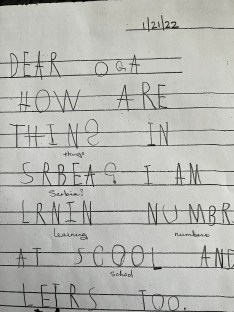 1/21/22
DEAR OGA
HOW ARE
THINS IN
things
SRBEA? I AM
Serbia?
LRNIN NUMBR
learning numbers
AT SCOOL AND
school
LETRS TOO.